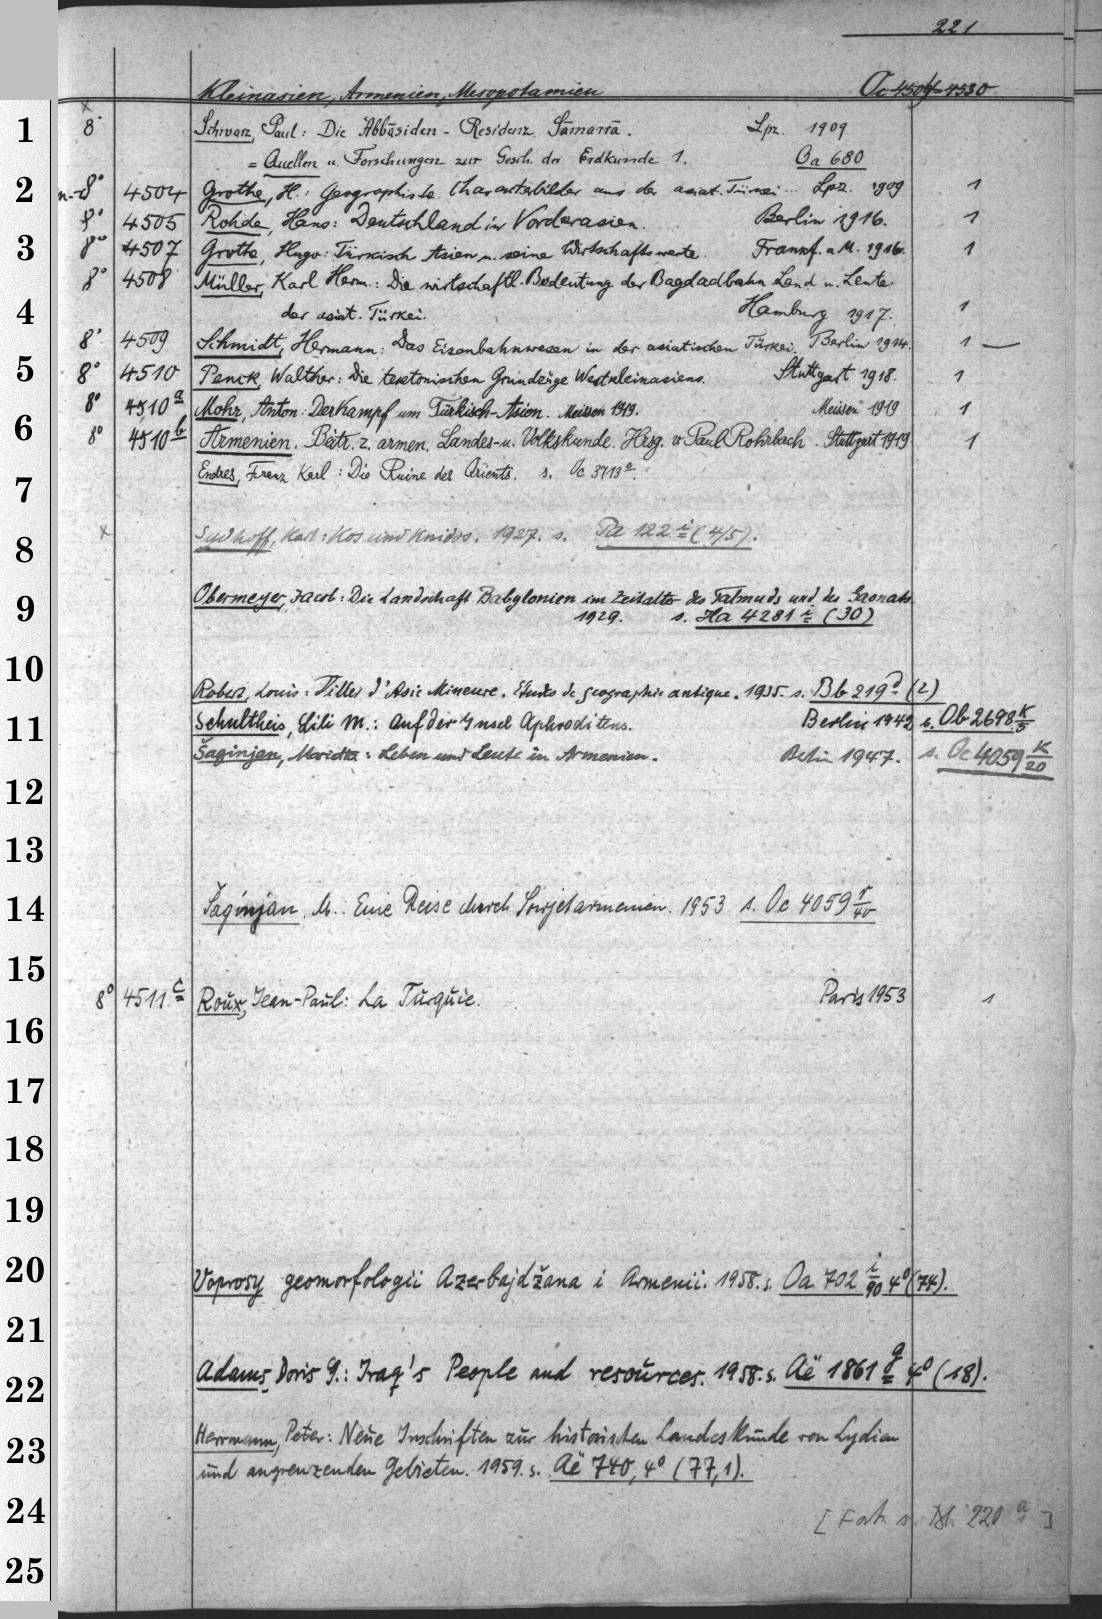 221
Kleinasien, Armenien, Mesopotamien Oc 4504-4530
x
1 8° Schwarz, Paul: Die Abbāsiden-Residenz Sāmarrā. Lpz. 1909
= Quellen u. Forschungen zur Gesch. der Erdkunde 1. Oa 680
2 8° 4504 Grothe, H.: Geographische Charakterbilder aus der asiat. Türkei Lpz. 1909 1
8° 4505 Rohde, Hans: Deutschland in Vorderasien. Berlin 1916. 1
3 8° 4507 Grothe, Hugo: Türkisch Asien u. seine Wirtschaftswerte. Frankf. a. M. 1916. 1
8° 4508 Müller, Karl Herm.: Die wirtschaftl. Bedeutung der Bagdadbahn Land u. Leute
4 der asiat. Türkei. Hamburg 1917. 1
8° 4509 Schmidt, Hermann: Das Eisenbahnwesen in der asiatischen Türkei. Berlin 1914. 1 —
5 8° 4510 Penck, Walther: Die tektonischen Grundzüge Westkleinasiens. Stuttgart 1918. 1
8° 4510 a Mohr, Anton: Der Kampf um Türkisch-Asien. Meissen 1919. Meissen 1919 1
6 8° 4510 b Armenien. Beitr. z. armen. Landes- u. Volkskunde. Hrsg. v. Paul Rohrbach. Stuttgart 1919 1
Endres, Franz Karl: Die Ruine des Orients. s. Oc 3713 a.
7
x Sudhoff, Karl: Kos und Knidos. 1927. s. Pa 122 i (4/5).
8
9 Obermeyer, Jacob: Die Landschaft Babylonien im Zeitalter des Talmuds und des Gaonats.
1929. s. Ha 4281 i (30)
10
Robert, Louis: Villes d'Asie Mineure. Etudes de geographie antique. 1935. s. Bb 219 d (2)
11 Schultheis, Lili M.: Auf der Insel Aphroditens. Berlin 1942 s. Ob 2698 K/5
Šaginjan, Marietta: Leben und Leute in Armenien. Berlin 1947. s. Oc 4059 K/20
12
13
14 Šaginjan, M.: Eine Reise durch Sowjetarmenien. 1953 s. Oc 4059 r/40
15
8° 4511 c Roux, Jean-Paul: La Turquie. Paris 1953 1
16
17
18
19
20 Voprosy geomorfologii Azerbajdžana i Armenii. 1958. s. Oa 702 i/90 4° (74).
21
22 Adams, Doris G.: Iraq's People and resources. 1958. s. Aë 1861 g 4° (18).
23 Herrmann, Peter: Neue Inschriften zur historischen Landeskunde von Lydien
und angrenzenden Gebieten. 1959. s. Aë 740, 4° (77,1).
24 [Forts. s. Bl. 220 a]
25